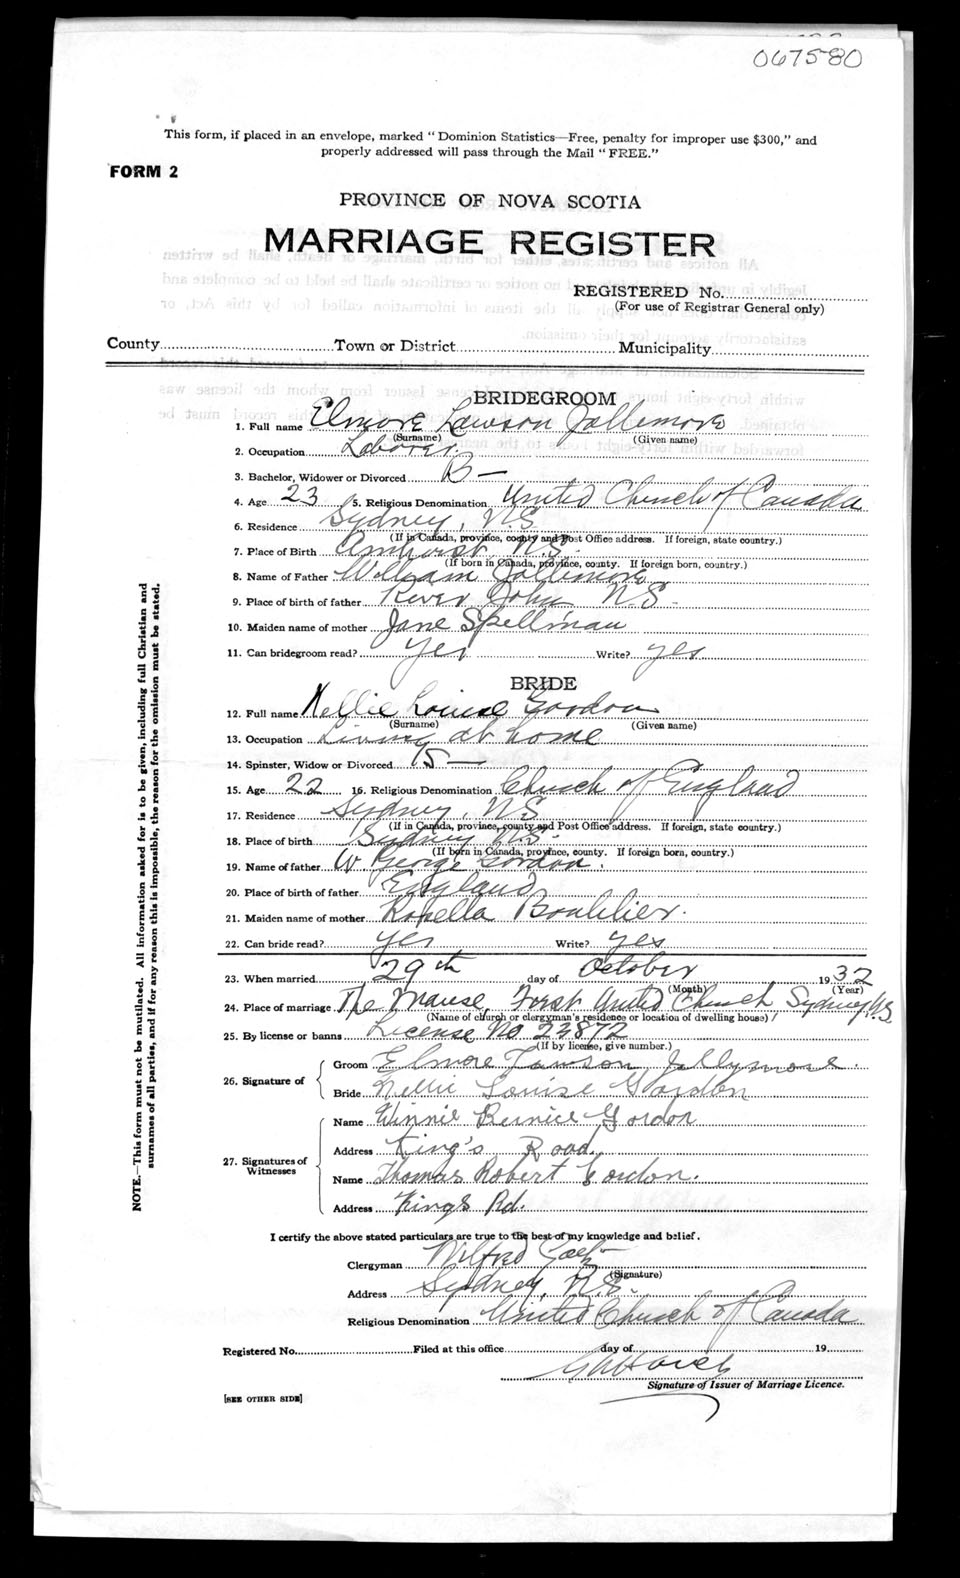 067580
This form, if placed in an envelope, marked "Dominion Statistics—Free, penalty for improper use $300," and
properly addressed will pass through the Mail "FREE."
FORM 2
PROVINCE OF NOVA SCOTIA
MARRIAGE REGISTER
REGISTERED No.
(For use of Registrar General only)
County Town or District Municipality
BRIDEGROOM
1. Full name Elmore Lawson Jollemore
(Surname) (Given name)
2. Occupation Laborer.
3. Bachelor, Widower or Divorced B—
4. Age 23 5. Religious Denomination United Church of Canada
6. Residence Sydney, N.S
(If in Canada, province, county and Post Office address. If foreign, state country.)
7. Place of Birth Amherst, N.S.
(If born in Canada, province, county. If foreign born, country.)
8. Name of Father William Jollemore
9. Place of birth of father River John N.S.
10. Maiden name of mother Jane Spellman
11. Can bridegroom read? Yes Write? yes
BRIDE
12. Full name Nellie Louise Gordon
(Surname) (Given name)
13. Occupation Living at home
14. Spinster, Widow or Divorced
15. Age 22 16. Religious Denomination Church of England
17. Residence Sydney, N.S
(If in Canada, province, county and Post Office address. If foreign, state country.)
18. Place of birth Sydney N.S.
(If born in Canada, province, county. If foreign born, country.)
19. Name of father W George Gordon.
20. Place of birth of father England
21. Maiden name of mother
22. Can bride read? yes Write? yes
23. When married 29th day of October 1932
(Month) (Year)
24. Place of marriage The Manse, First United Church Sydney, N.S
(Name of church or clergyman's residence or location of dwelling house)
25. By license or banns License No 23872
(If by license, give number.)
26. Signature of
Groom Elmore Lawson Jollymore.
Bride Nellie Louise Gordon
27. Signatures of Witnesses
Name Winnie Bernice Gordon
Address King's Road.
Name Thomas Robert Gordon.
Address Kings Rd.
I certify the above stated particulars are true to the best of my knowledge and belief.
Clergyman Wilfred
(Signature)
Address Sydney, N.S.
Religious Denomination United Church of Canada
Registered No. Filed at this office day of 19
Signature of Issuer of Marriage Licence.
[SEE OTHER SIDE]
NOTE.—This form must not be mutilated. All information asked for is to be given, including full Christian and
surnames of all parties, and if for any reason this is impossible, the reason for the omission must be stated.